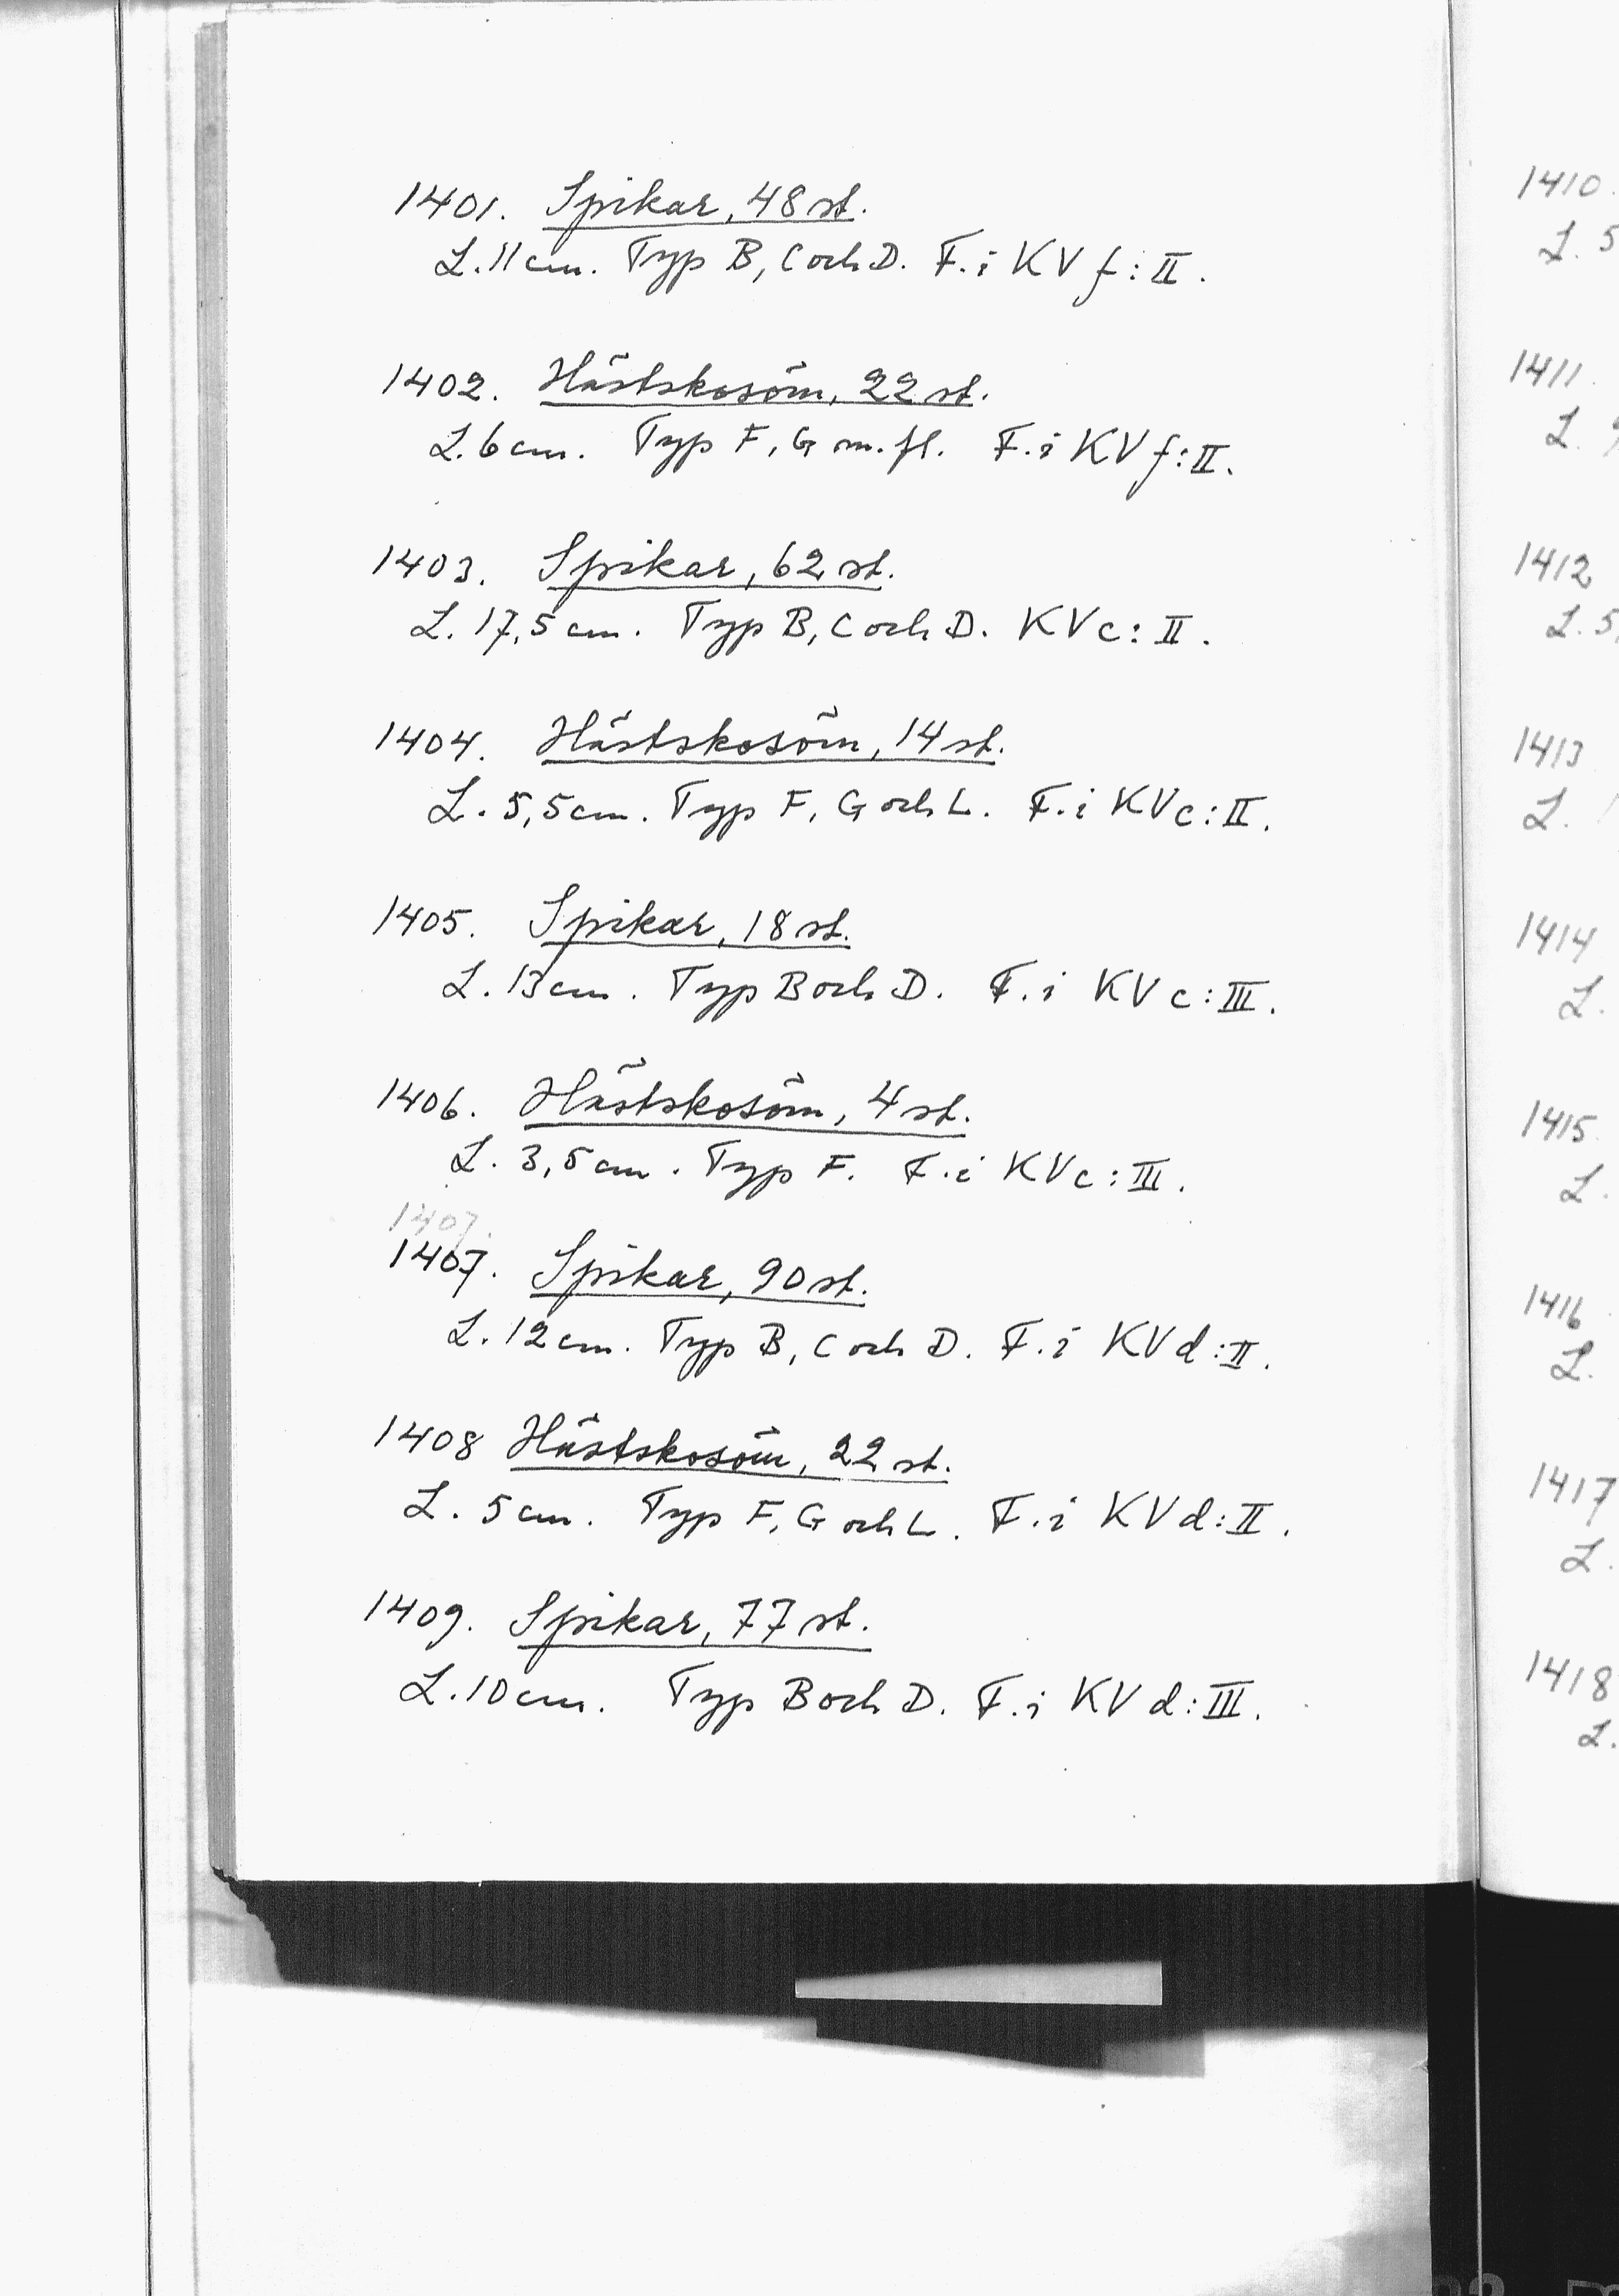 1401. Spikar, 48 st.
L. 11 cm. Typ B, C och D. F. i KV f: II.
1402. Hästskosöm, 22 st.
L. 6 cm. Typ F, G m. fl. F. i KV f: II.
1403. Spikar, 62 st.
L. 17,5 cm. Typ B, C och D. KV c: II.
1404. Hästskosöm, 14 st.
L. 5,5 cm. Typ F, G och L. F. i KV c: II.
1405. Spikar, 18 st.
L. 13 cm. Typ B och D. F. i KV c: III.
1406. Hästskosöm, 4 st.
L. 3,5 cm. Typ F. F. i KV c: III.
1407.
1407. Spikar, 90 st.
L. 12 cm. Typ B, C och D. F. i KV d: II.
1408 Hästskosöm, 22 st.
L. 5 cm. Typ F, G och L. F. i KV d: II.
1409. Spikar, 77 st.
L. 10 cm. Typ B och D. F. i KV d: III.
1410.
L. 5
1411.
L.
1412
L. 5,
1413
L.
1414
L.
1415
L.
1416
L.
1417
L.
1418
L.